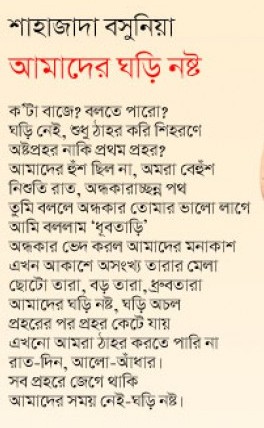 শাহাজাদা বসুনিয়া
আমাদের ঘড়ি নষ্ট
ক'টা বাজে? বলতে পারো?
ঘড়ি নেই, শুধু ঠাহর করি শিহরণে
অষ্টপ্রহর নাকি প্রথম প্রহর?
আমাদের হুঁশ ছিল না, অমরা বেহুঁশ
নিশুতি রাত, অন্ধকারাচ্ছন্ন পথ
তুমি বললে অন্ধকার তোমার ভালো লাগে
আমি বললাম ‘ধূবতাড়ি’
অন্ধকার ভেদ করল আমাদের মনাকাশ
এখন আকাশে অসংখ্য তারার মেলা
ছোটো তারা, বড় তারা, ধ্রুবতারা
আমাদের ঘড়ি নষ্ট, ঘড়ি অচল
প্রহরের পর প্রহর কেটে যায়
এখনো আমরা ঠাহর করতে পারি না
রাত-দিন, আলো-আঁধার।
সব প্রহরে জেগে থাকি
আমাদের সময় নেই-ঘড়ি নষ্ট।